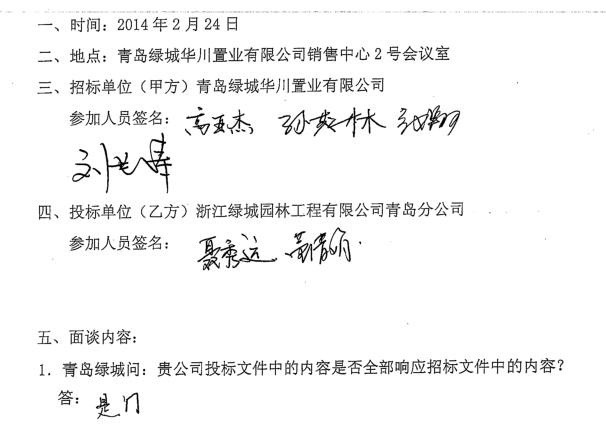 一、时间：2014年2月24日
二、地点：青岛绿城华川置业有限公司销售中心2号会议室
三、招标单位（甲方）青岛绿城华川置业有限公司
参加人员签名：高亚杰
四、投标单位（乙方）浙江绿城园林工程有限公司青岛分公司
参加人员签名：聂秀远
五、面谈内容：
1．青岛绿城问：贵公司投标文件中的内容是否全部响应招标文件中的内容？
答：是